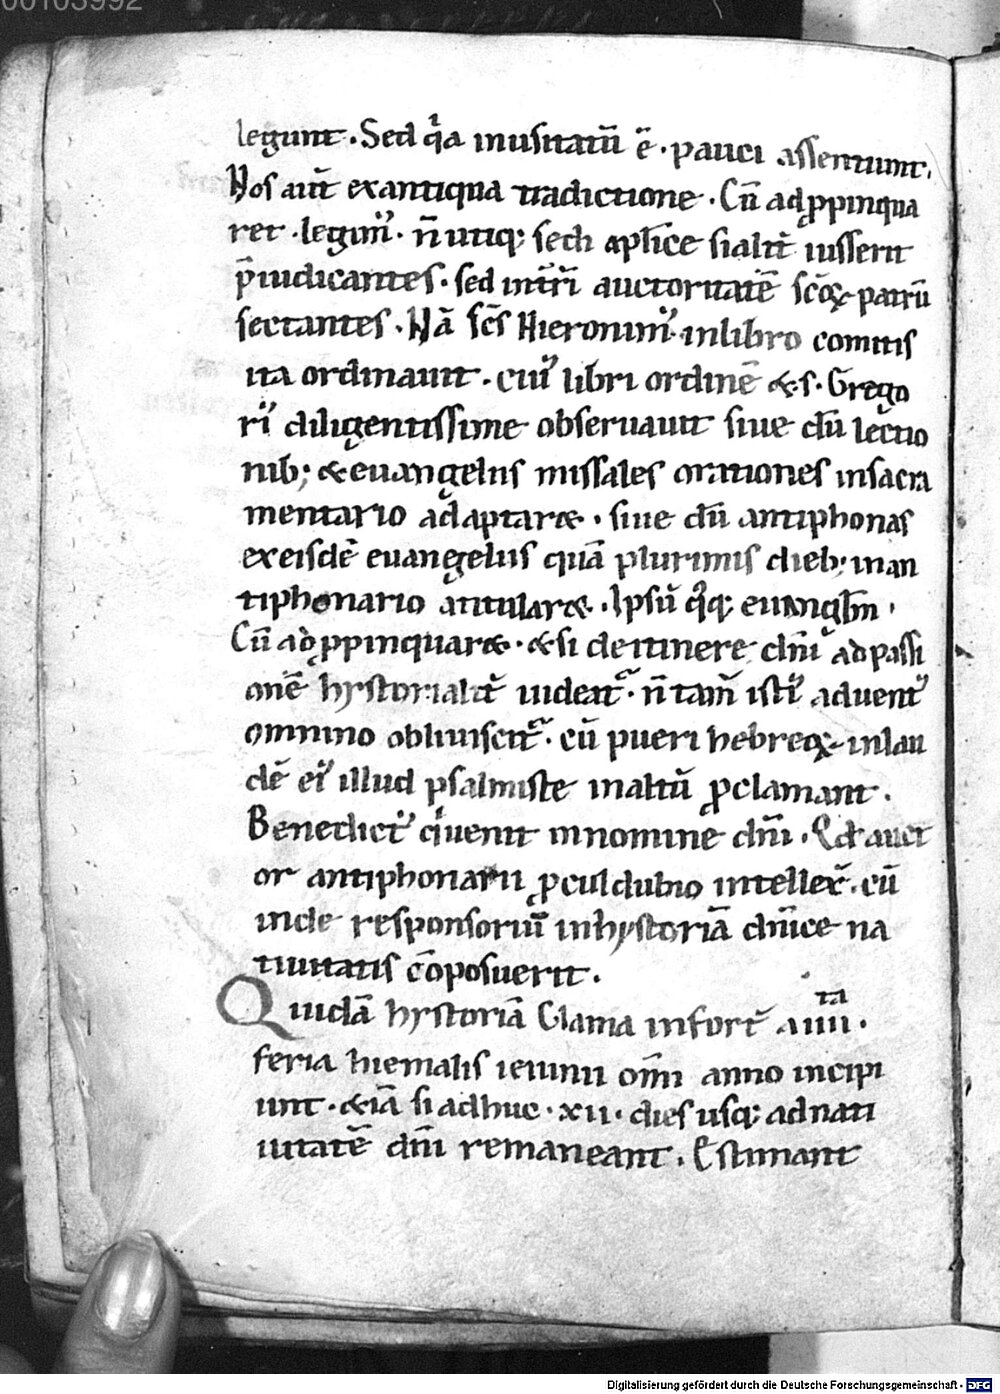 00103992
legunt. Sed qͥa inusitatū ē. pauci assentiunt.
Nos aut̄ exantiqua tradictione. Cū adꝓpinqua
ret. legim᷒. n̄ utiq; sedi aplīce sialit̄ iusserit
p̄iudicantes. sed intrī auctoritatē scōꝝ patrū
sectantes. Nā scs̄ Hieronim᷒ inlibro comitis
ita ordinauit. cui᷒ libri ordinē & s. Grego
ri᷒ diligentissime obseruauit siue cū lectio
nib; & euangeliis missales orationes insacra
mentario adaptaret. siue cū antiphonas
exeisdē euangeliis quā plurimis dieb; inan
tiphonario atitularet. Ipsū qͦq; euangłm.
Cū adꝓpinquaret. & si detinere dnī adpassi
onē hystorialit̄ uideat᷑. n̄ tam̄ isti᷒ aduent᷒
omnino obliuiscit᷑. cū pueri hebreoꝝ inlau
dē ei᷒ illud psalmiste inaltū ꝓclamant.
Benedict᷒ qͥ uenit innomine dnī. Qd̄ auct
or antiphonarii ꝓculdubio intellex̄. cū
inde responsoriū inhystoriā dn̄ice na
tiuitatis cōposuerit.
Quidā hystoriā Clama infort̄ a iiii.ta
feria hiemalis ieiunii om̄i anno incipi
unt. &iā si adhuc. xii. dies usq; adnati
uitatē dnī remaneant. Estimant
Digitalisierung gefördert durch die Deutsche Forschungsgemeinschaft - DFG